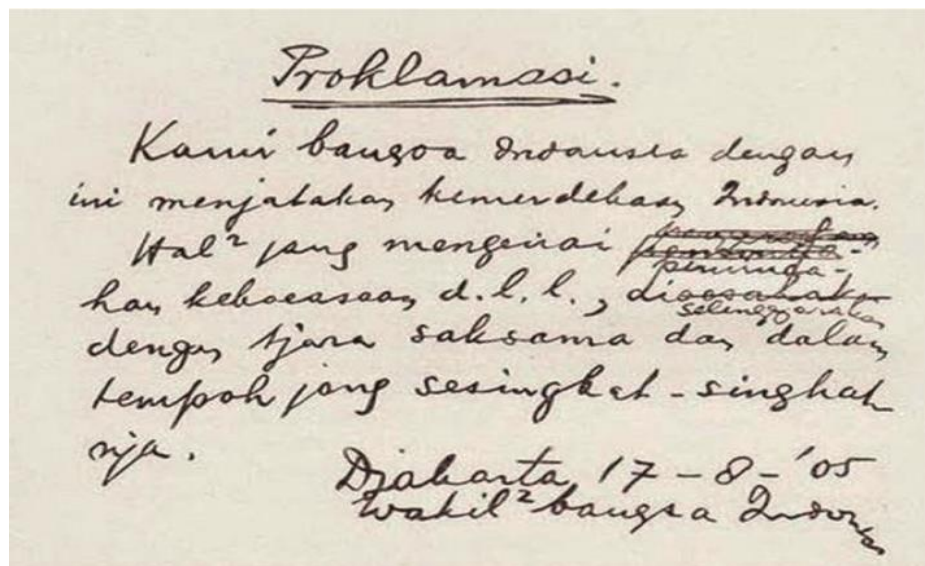 Proklamasi.
Kami bangsa Indonesia dengan
ini menjatakan kemerdekaan Indonesia.
Hal² jang mengenai
peminda-
han kekoeasaan d.l.l., di
selenggarakan
dengan tjara saksama dan dalam
tempoh jang sesingkat-singkat
nja.
Djakarta, 17 - 8 - '05
Wakil² bangsa Indonesia